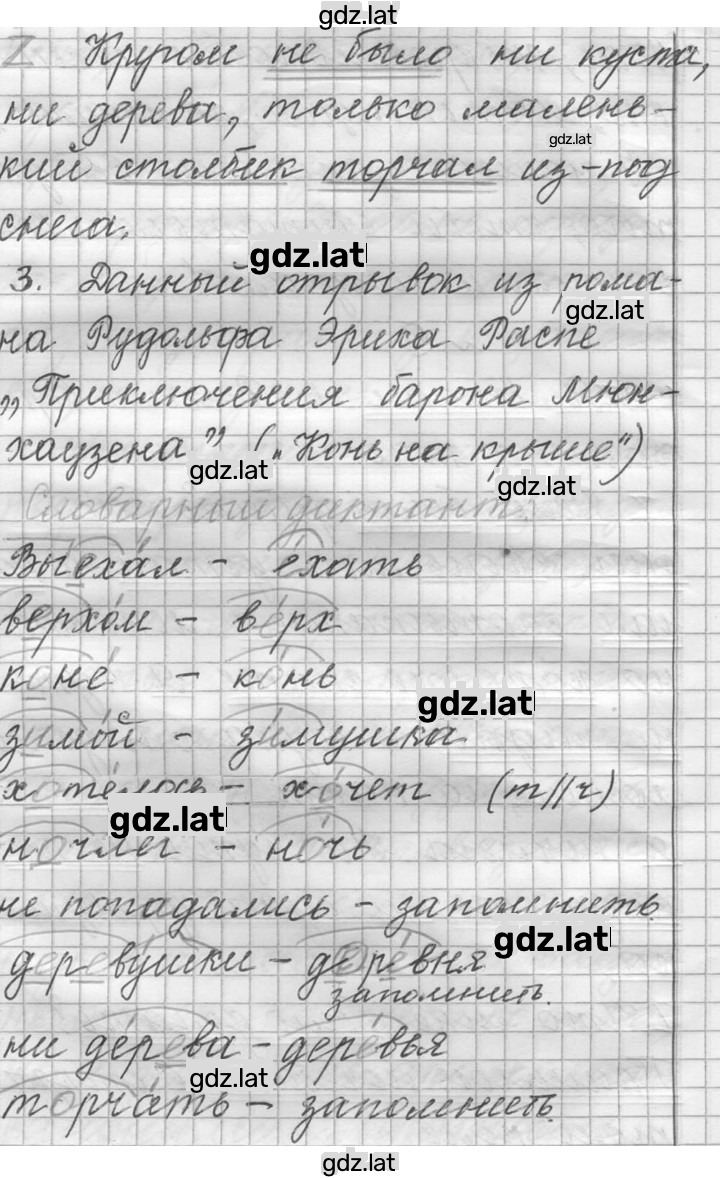 gdz.lat
2 Кругом не было ни куста,
ни дерева, только малень-
gdz.lat
кий столбик торчал из-под
снега.
gdz.lat
3. Данный отрывок из рома-
gdz.lat
на Рудольфа Эриха Распе
„Приключения барона Мюн-
хаузена" („Конь на крыше")
gdz.lat
gdz.lat
Словарный диктант.
Выехал – ехать
верхом – верх
коне – конь
gdz.lat
зимой – зимушка
хотелось – хочет (т//ч)
gdz.lat
ночлег – ночь
не попадались – запомнить.
gdz.lat
деревушки – деревня
запомнить.
ни дерева – деревья
gdz.lat
торчать – запомнить.
gdz.lat